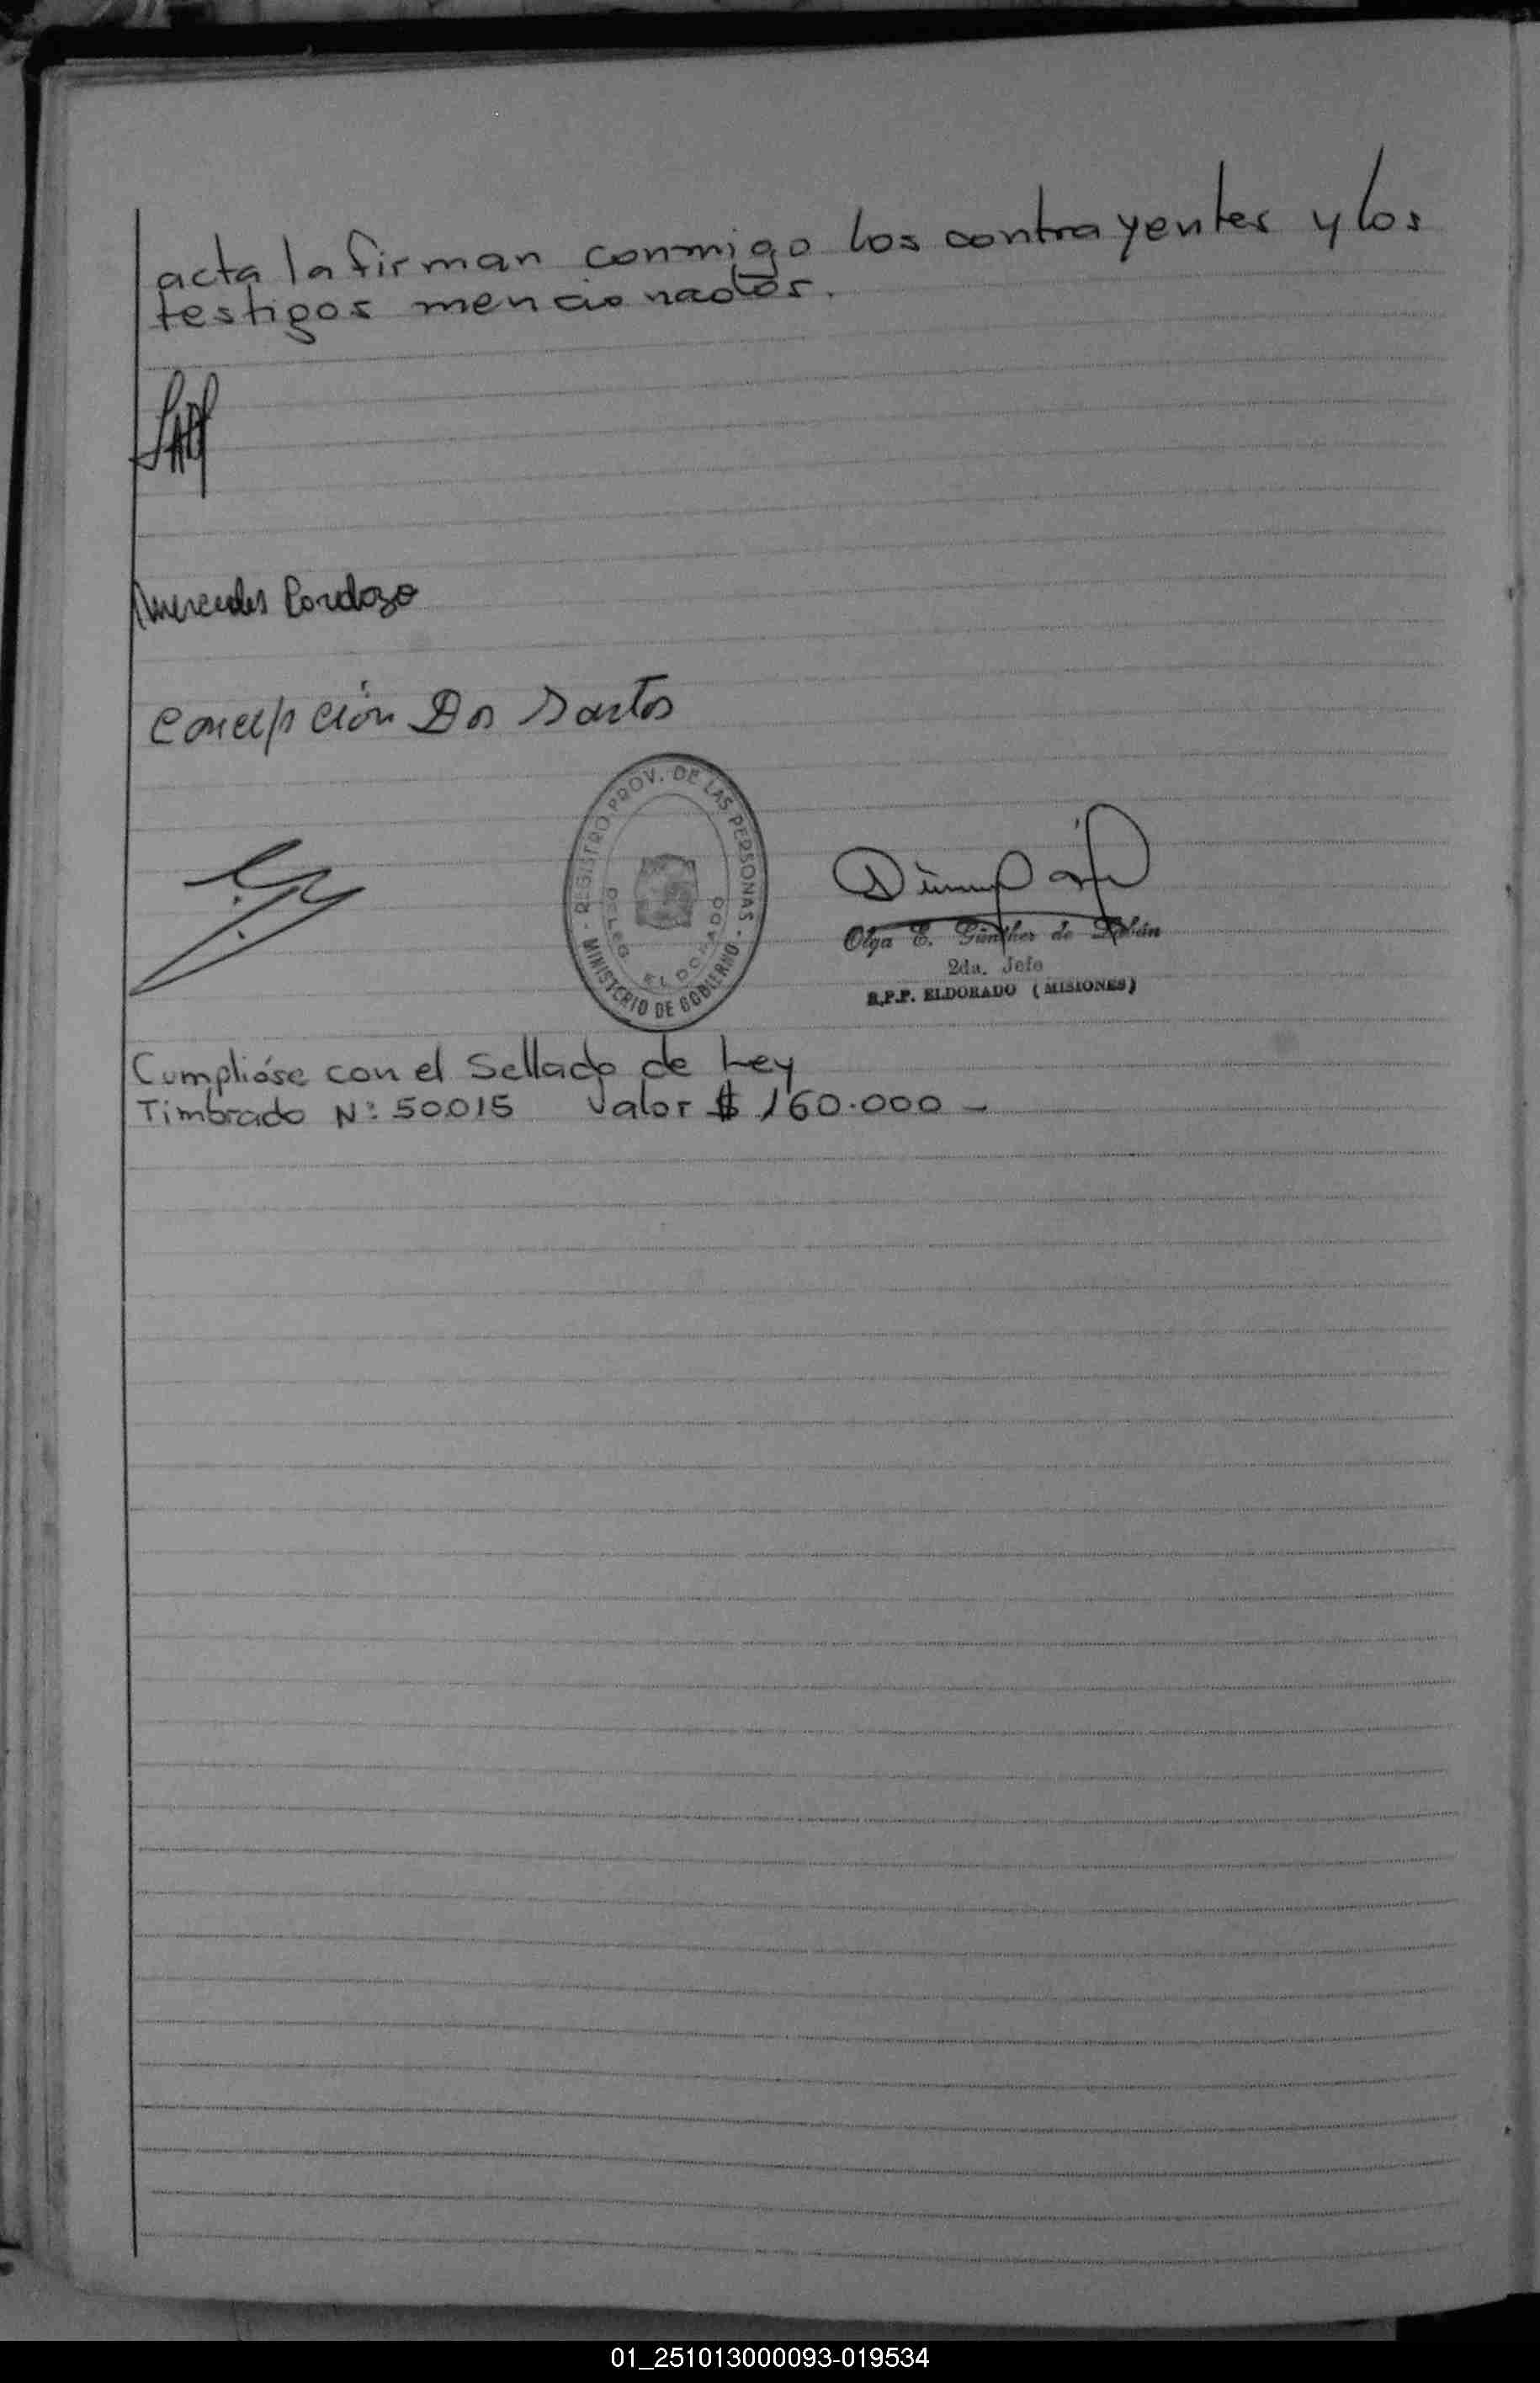 acta la firman conmigo los contrayentes y los
testigos mencionados.
Mercedes Cardozo
Concepción Dos Santos
REGISTRO PROV. DE LAS PERSONAS
DELEG. ELDORADO
MINISTERIO DE GOBIERNO
Olga E. Günther de
2da. Jefe
R.P.P. ELDORADO (MISIONES)
Cumplióse con el Sellado de Ley
Timbrado Nº: 50015 Valor $ 160.000 -
01_251013000093-019534